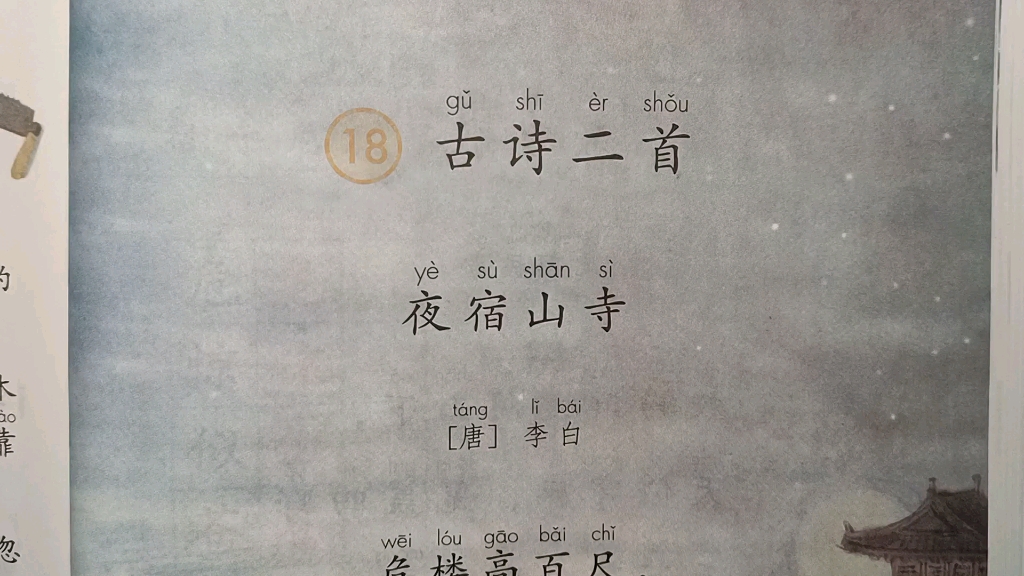 gǔ shī èr shǒu
18 古诗二首
yè sù shān sì
夜宿山寺
táng lǐ bái
[唐] 李白
wēi lóu gāo bǎi chǐ
危楼高百尺，